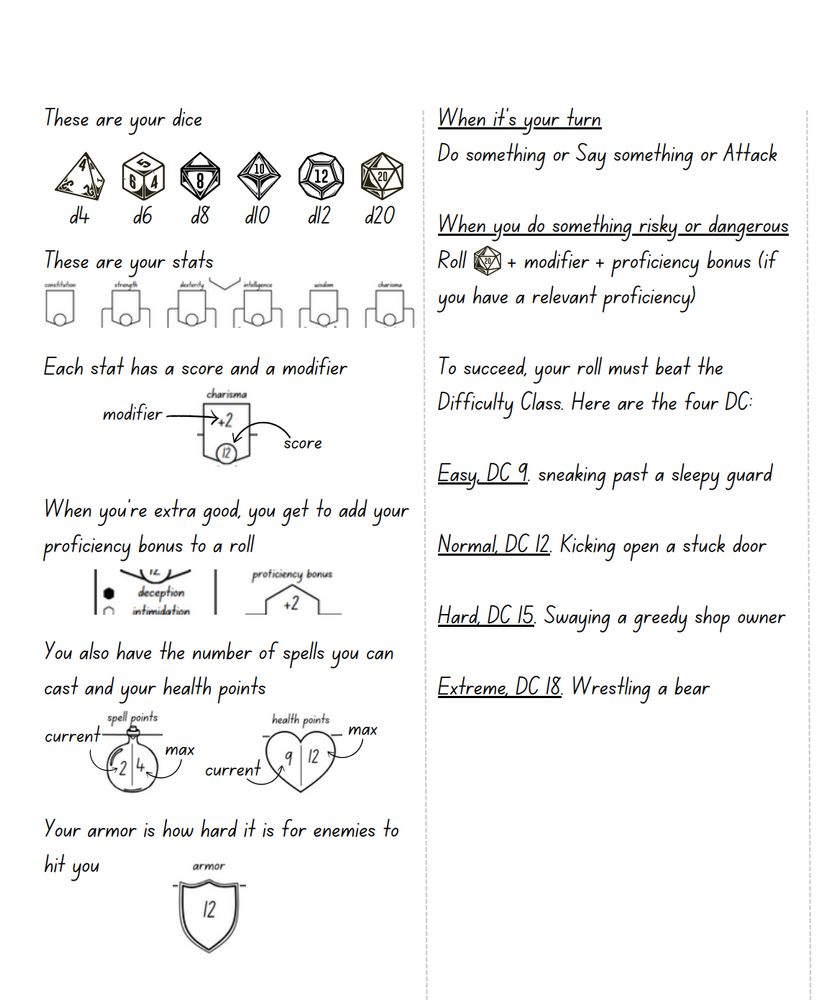 These are your dice
4 5 6 4 8 10 12 20
d4 d6 d8 d10 d12 d20
These are your stats
constitution strength dexterity intelligence wisdom charisma
Each stat has a score and a modifier
charisma
modifier +2
12 score
When you're extra good, you get to add your
proficiency bonus to a roll
12 proficiency bonus
deception +2
intimidation
You also have the number of spells you can
cast and your health points
spell points health points
current max
2 4 max
current 9 12
Your armor is how hard it is for enemies to
hit you
armor
12
When it's your turn
Do something or Say something or Attack
When you do something risky or dangerous
Roll 20 + modifier + proficiency bonus (if
you have a relevant proficiency)
To succeed, your roll must beat the
Difficulty Class. Here are the four DC:
Easy, DC 9. sneaking past a sleepy guard
Normal, DC 12. Kicking open a stuck door
Hard, DC 15. Swaying a greedy shop owner
Extreme, DC 18. Wrestling a bear